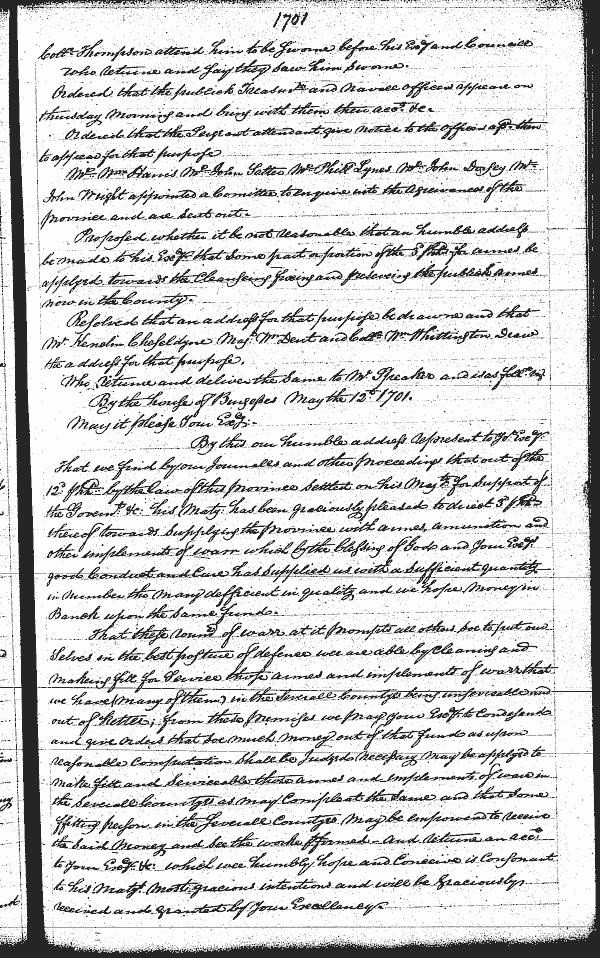 1701
Coll.o Thompson attend him to be Sworne before his Exc.y and Councill
who returne and Say they saw him Sworne.
Ordered that the publick Treasur.rs and Navall officers appeare on
thursday Morning and bring with them their acc.o &c.
Ordered that the Serjeant attendant give notice to the officers afs.d then
to appear for that purpose
M.r W.m Harris M.r John Salter M.r Phill Lynes M.r John Dorsey M.r
John Wright appointed a Comittee to enquire into the Agreivances of the
Province and are sent out.
Proposed whether it be not reasonable that an humble addresse
be made to his Exc.y that Some part or portion of the 3.d hhd. for armes be
applyed towards the Cleanseing fixing and preserving the publick armes
now in the County.
Resolved that an address for that purpose be drawne and that
M.r Kenelm Cheseldyne Maj.r W.m Dent and Coll.o W.m Whittington Draw
the address for that purpose.
Who returne and deliver the Same to M.r Speaker and is as foll.s viz
By the house of Burgesses May the 12.o 1701.
May it please Your Exc.y.
By this our humble address represent to Yo.r Exc.y
That we find by our Journalls and other Proceedings that out of the
12.d hhd. by the Law of this Province Settled on his Maj.ty for Support of
the Governm.t &c. his Maty. has been graciously pleased to direct 3.d hhd.
thereof towards Supplying the Province with armes, amunition and
other implements of warr which by the blessing of God and Your Exc.ys
good Conduct and Care has Supplied us with a Sufficient quantity
in number tho Many defficient in quality and we hope Money in
Banck upon the Same fund.
That these rumo.rs of warr at it Prompts all others soe to put our
Selves in the best posture of defence wee are able by Cleaning and
making fitt for Service those armes and implements of warr that
we have (many of them) in the Severall Countyes being unserviceable and
out of Kelter; from these Premises we Pray your Exc.y to Condesend
and give Orders that soe much Money out of that fund as upon
reasonable Computation Shall be Judged necessary may be applyed to
make fitt and Serviceable those armes and implements of warr in
the Severall Countyes as may Compleat the Same and that Some
fitting person in the Severall Countyes May be empowred to receive
the Said Money and See the worke pformed. And returne an acc.o
to Your Exc.y &c. which wee humbly hope and Conceive is Consonant
to his Matys. Most gracious intentions and will be graciously
received and granted by Your Excellency.